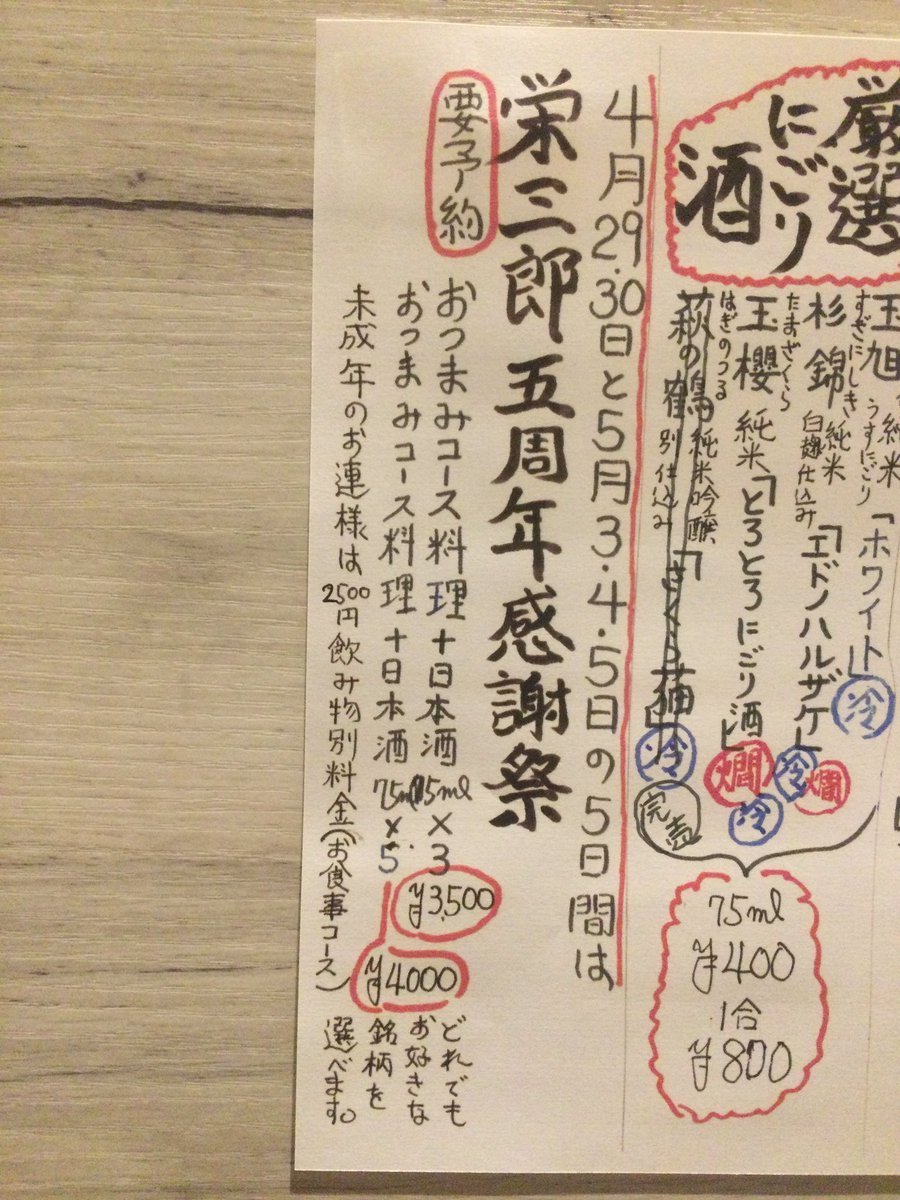 厳選
にごり
酒
玉旭
純米
うすにごり
「ホワイト」
冷
すぎにしき
杉錦
純米
白麹仕込み
「エドノハルザケ」
冷
燗
たまざくら
玉櫻
純米「とろとろにごり酒」
燗
冷
はぎのつる
萩の鶴
純米吟醸
別仕込み
「さくら猫」
冷
完売
75ml
¥400
1合
¥800
4月29.30日と5月3.4.5日の5日間は
栄三郎五周年感謝祭
要予約
おつまみコース料理+日本酒75ml×3
¥3,500
おつまみコース料理+日本酒75ml×5
¥4000
未成年のお連様は2500円飲み物別料金(お食事コース)
どれでも
お好きな
銘柄を
選べます。